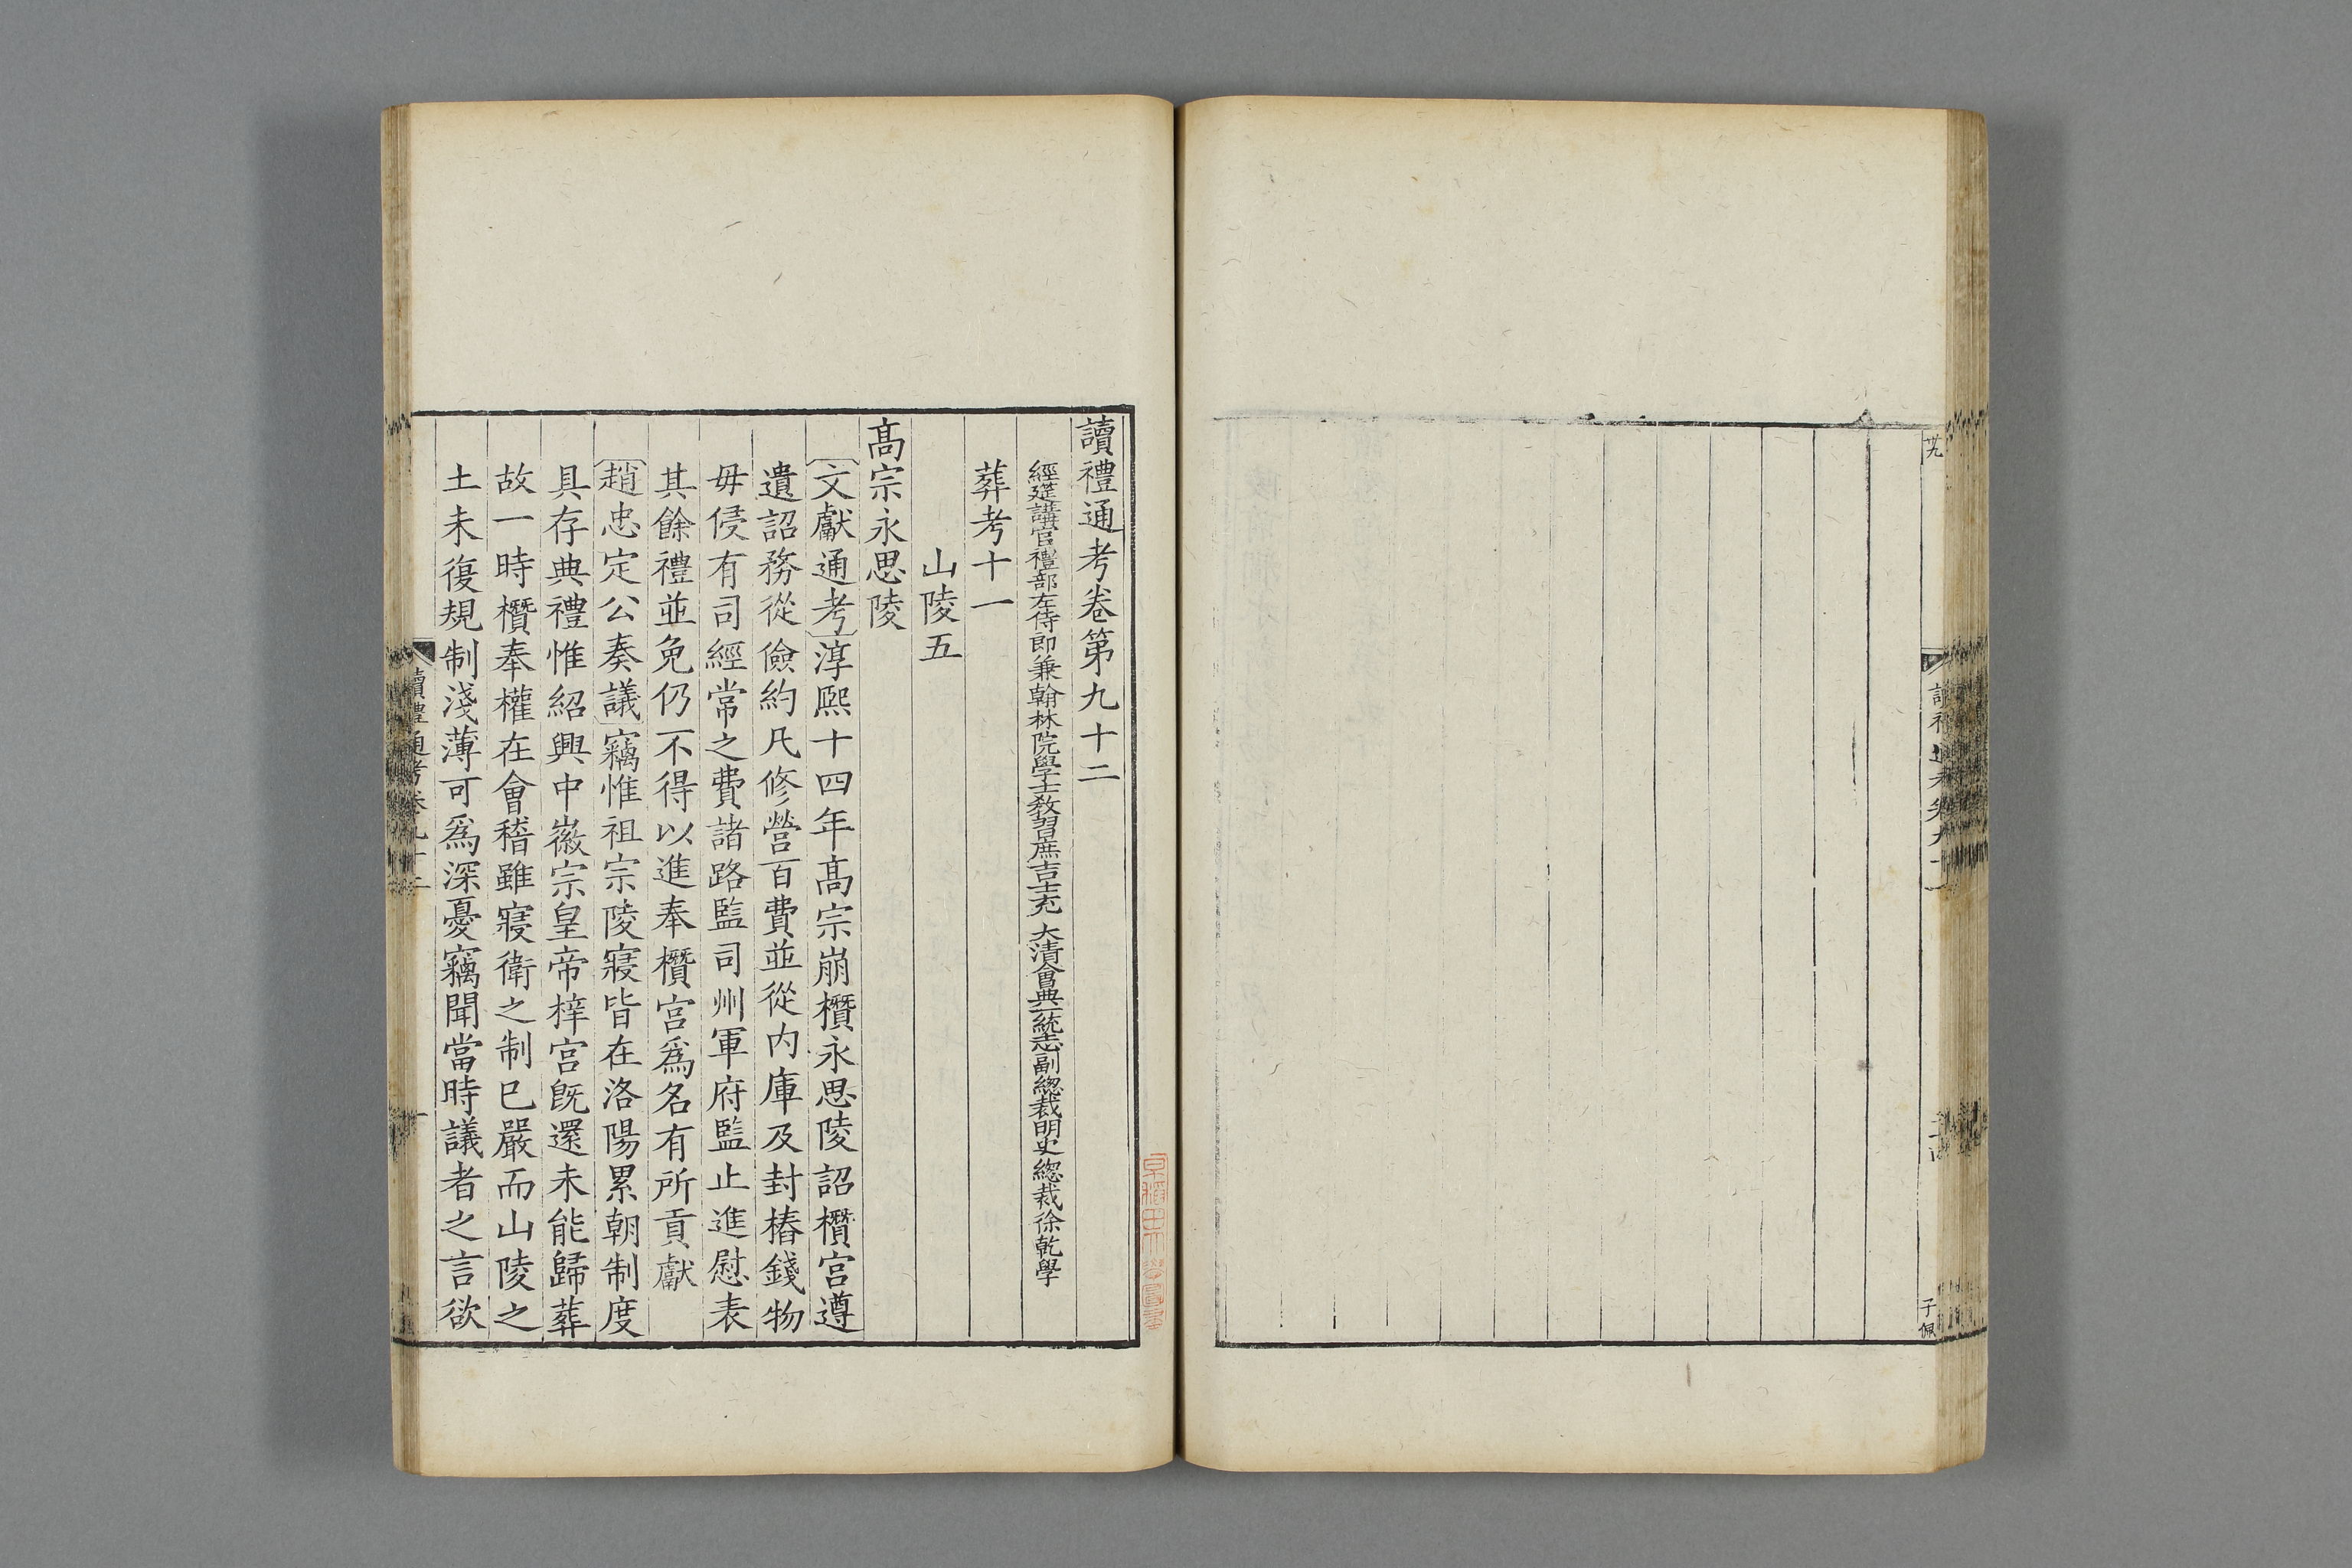 讀禮通考卷第九十二
經筵講官禮部左侍郎兼翰林院學士教習庶吉士充 大清會典一統志副總裁明史總裁徐乾學
葬考十一
山陵五
髙宗永思陵
文獻通考淳熙十四年髙宗崩欑永思陵詔欑宫遵
遺詔務從儉約凡修營百費並從内庫及封樁錢物
毋侵有司經常之費諸路監司州軍府監止進慰表
其餘禮並免仍不得以進奉欑宫爲名有所貢獻
趙忠定公奏議竊惟祖宗陵寢皆在洛陽累朝制度
具存典禮惟紹興中徽宗皇帝梓宫旣還未能歸葬
故一時欑奉權在會稽雖寢衛之制巳嚴而山陵之
土未復規制淺薄可爲深憂竊聞當時議者之言欲
讀禮通考卷九十二
一
子佩